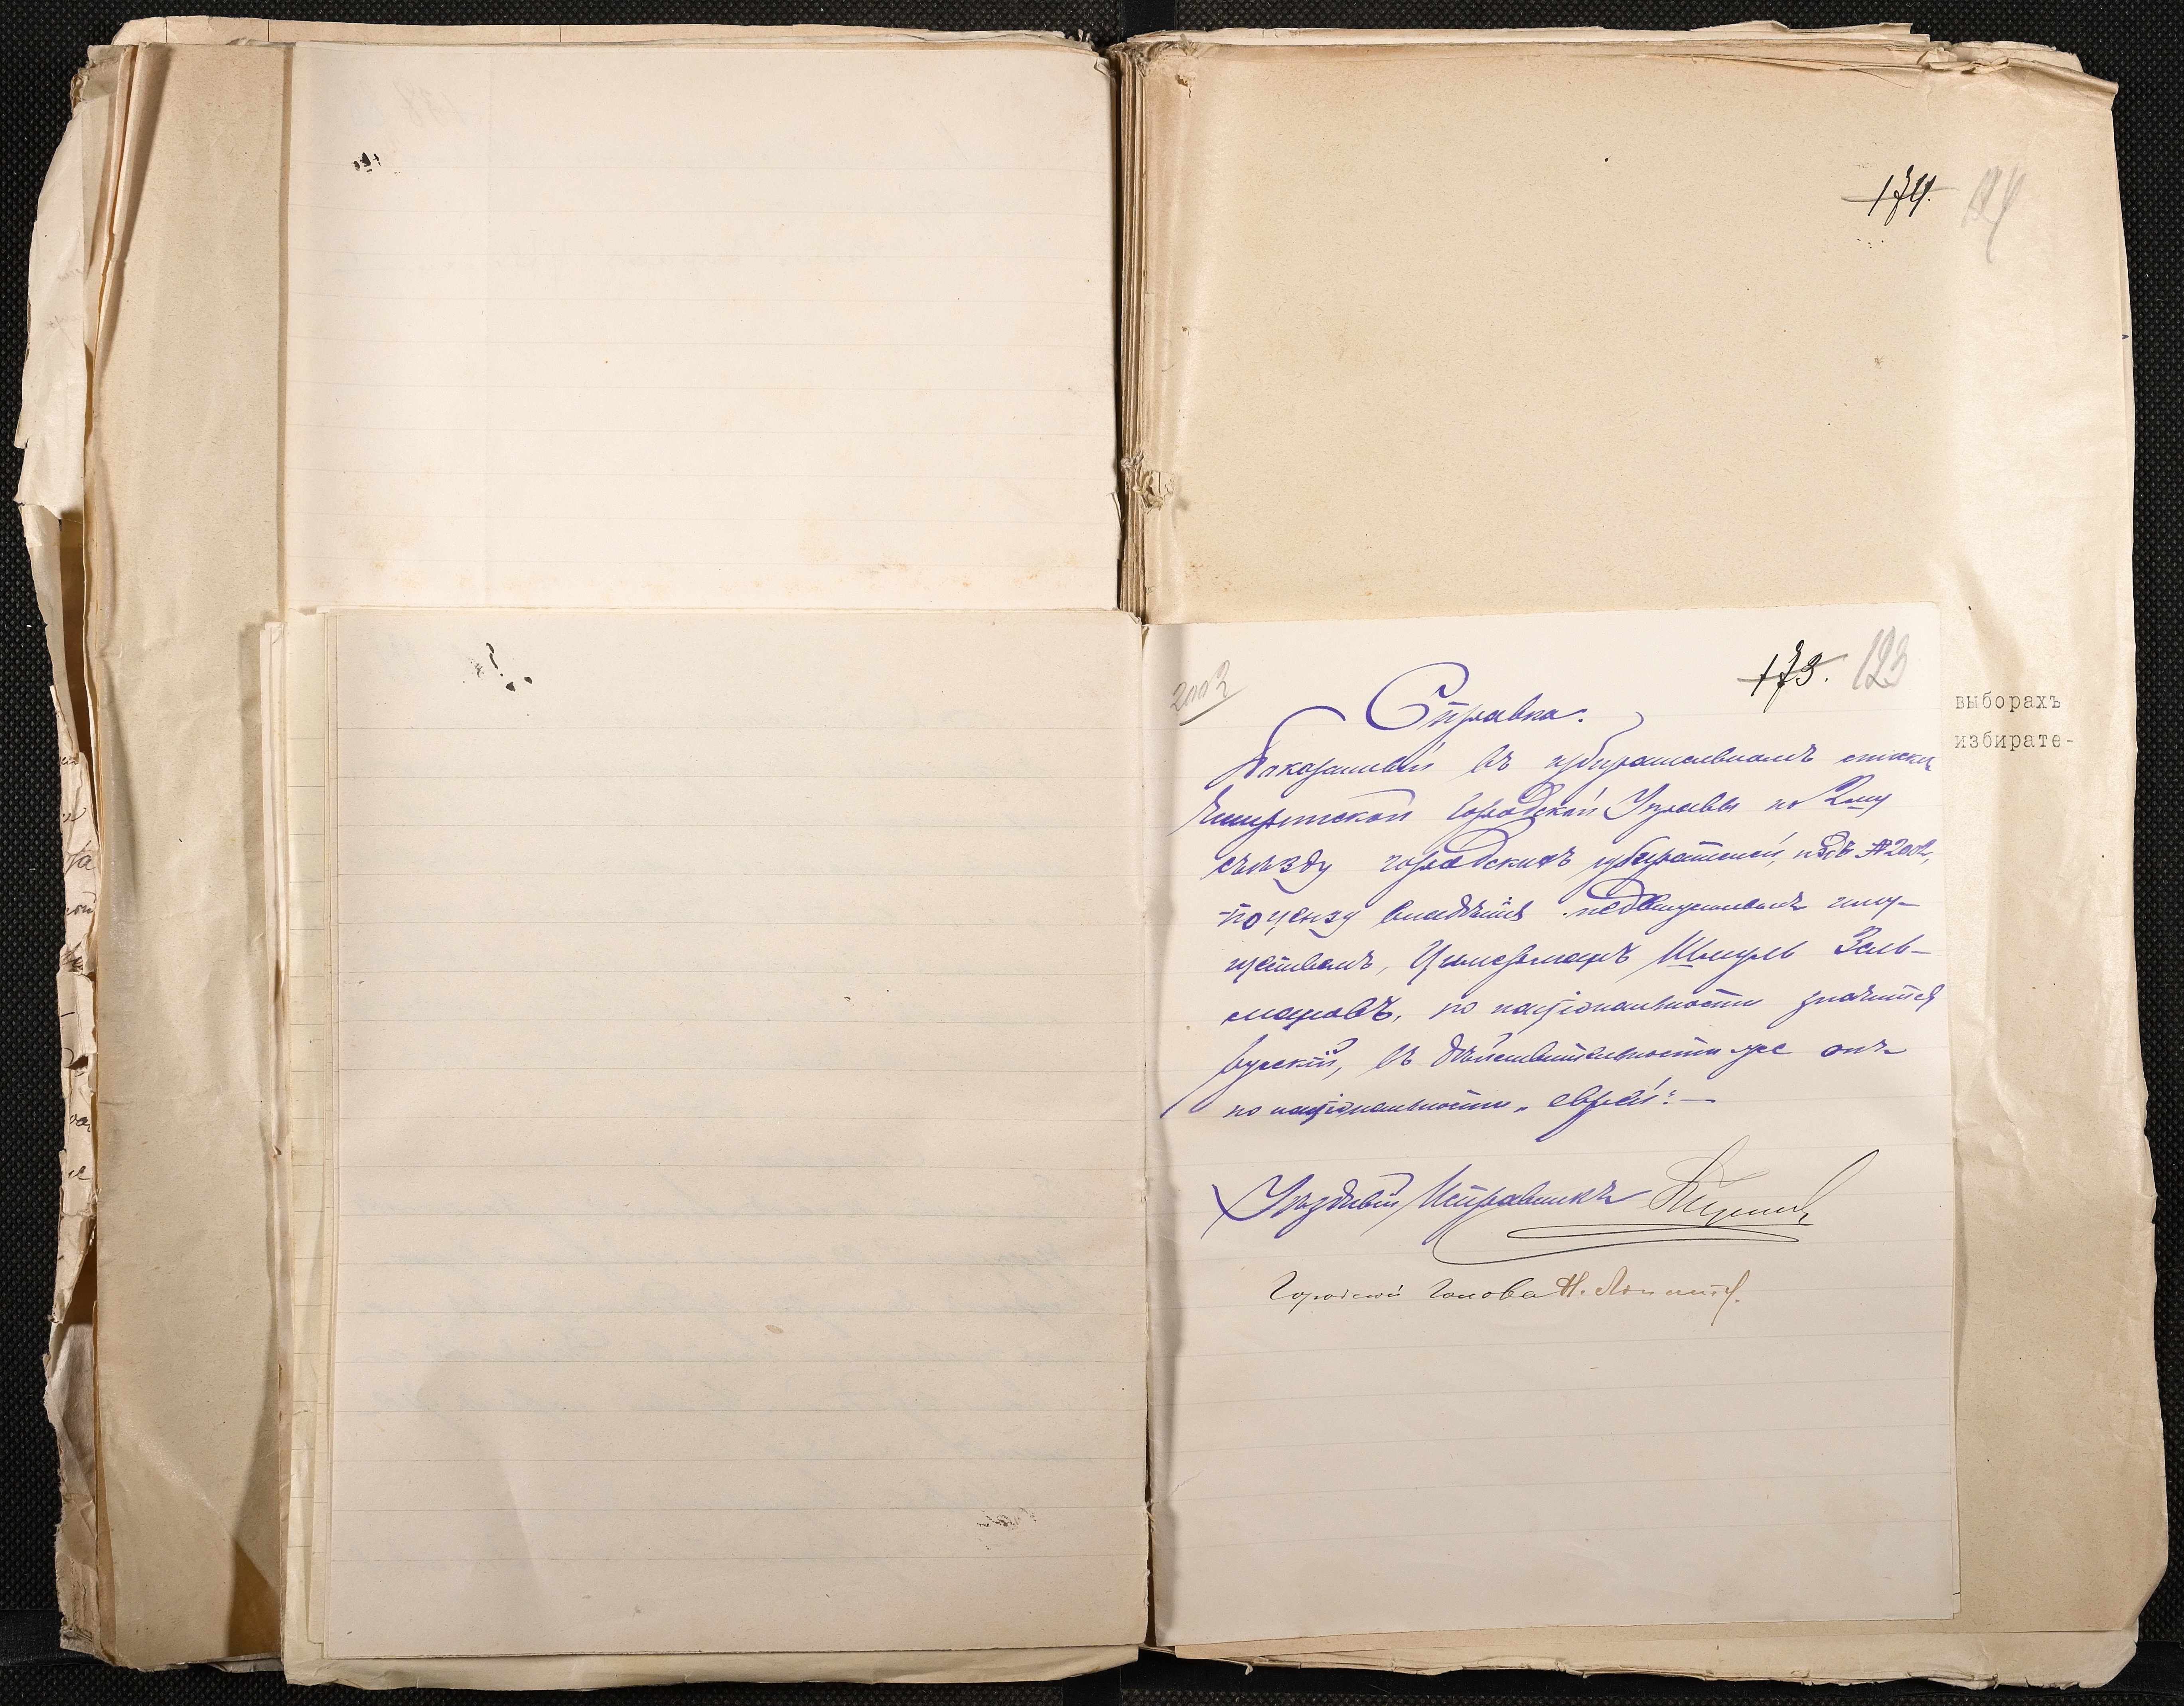 174. 124
2003
173. 123
Справка.
Показанный въ избирательномъ списке
городской Управы по 2му
съѣзду городскихъ избирателей, подъ № 2002,
по цензу владѣнія недвижимымъ иму-
ществомъ, Цимерманъ Шмуль Зель-
мановъ, по національности значится
русскій, въ дѣйствительности же онъ
по національности „еврей“.—
Уѣздный Исправникъ
Городской Голова Н.
выборахъ
избирате-